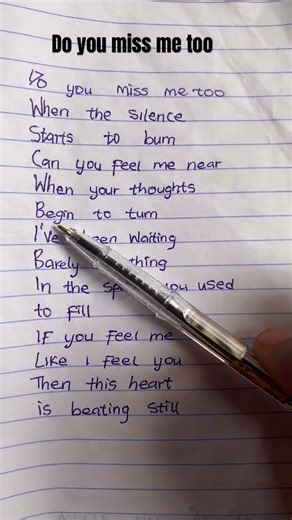 Do you miss me too
Do you miss me too
When the silence
Starts to burn
Can you feel me near
When your thoughts
Begin to turn
I've been waiting
Barely thing
In the you used
to fill
IF you feel me
Like I feel you
Then this heart
is beating still